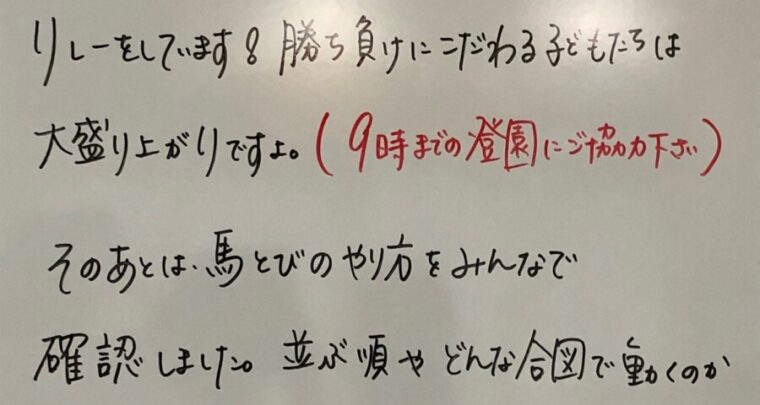 リレーをしています!! 勝ち負けにこだわる子どもたちは
大盛り上がりですよ。(9時までの登園にご協力下さい)
そのあとは、馬とびのやり方をみんなで
確認しました。並ぶ順やどんな合図で動くのか